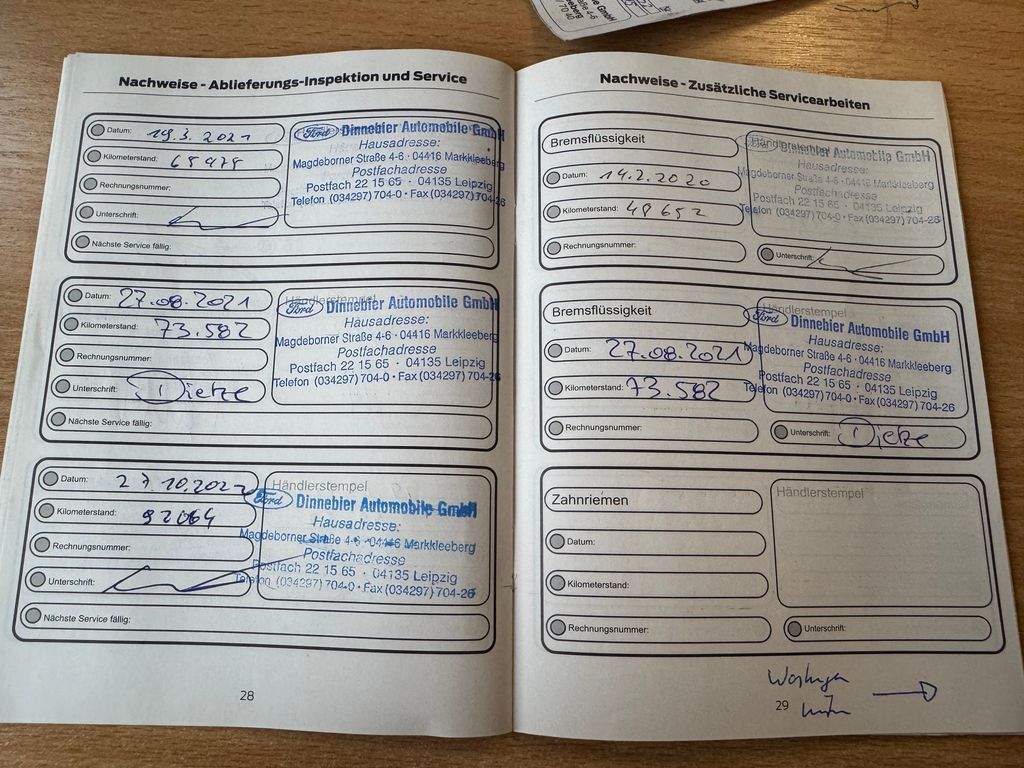 Nachweise - Ablieferungs-Inspektion und Service
Datum: 19.3.2021
Kilometerstand:
Rechnungsnummer:
Unterschrift:
Nächste Service fällig:
Ford Dinnebier Automobile GmbH
Hausadresse:
Magdeborner Straße 4-6 · 04416 Markkleeberg
Postfachadresse
Postfach 22 15 65 · 04135 Leipzig
Telefon (034297) 704-0 · Fax (034297) 704-26
Datum: 27.08.2021
Kilometerstand: 73.582
Rechnungsnummer:
Unterschrift: Dietze
Nächste Service fällig:
Händlerstempel
Ford Dinnebier Automobile GmbH
Hausadresse:
Magdeborner Straße 4-6 · 04416 Markkleeberg
Postfachadresse
Postfach 22 15 65 · 04135 Leipzig
Telefon (034297) 704-0 · Fax (034297) 704-26
Datum: 27.10.2022
Kilometerstand: 92064
Rechnungsnummer:
Unterschrift:
Nächste Service fällig:
Händlerstempel
Ford Dinnebier Automobile GmbH
Hausadresse:
Magdeborner Straße 4-6 · 04416 Markkleeberg
Postfachadresse
Postfach 22 15 65 · 04135 Leipzig
Telefon (034297) 704-0 · Fax (034297) 704-26
28
Nachweise - Zusätzliche Servicearbeiten
Bremsflüssigkeit
Datum: 14.2.2020
Kilometerstand: 48652
Rechnungsnummer:
Händlerstempel
Ford Dinnebier Automobile GmbH
Hausadresse:
Magdeborner Straße 4-6 · 04416 Markkleeberg
Postfachadresse
Postfach 22 15 65 · 04135 Leipzig
Telefon (034297) 704-0 · Fax (034297) 704-26
Unterschrift:
Bremsflüssigkeit
Datum: 27.08.2021
Kilometerstand: 73.582
Rechnungsnummer:
Händlerstempel
Ford Dinnebier Automobile GmbH
Hausadresse:
Magdeborner Straße 4-6 · 04416 Markkleeberg
Postfachadresse
Postfach 22 15 65 · 04135 Leipzig
Telefon (034297) 704-0 · Fax (034297) 704-26
Unterschrift: Dietze
Zahnriemen
Datum:
Kilometerstand:
Rechnungsnummer:
Händlerstempel
Unterschrift:
29